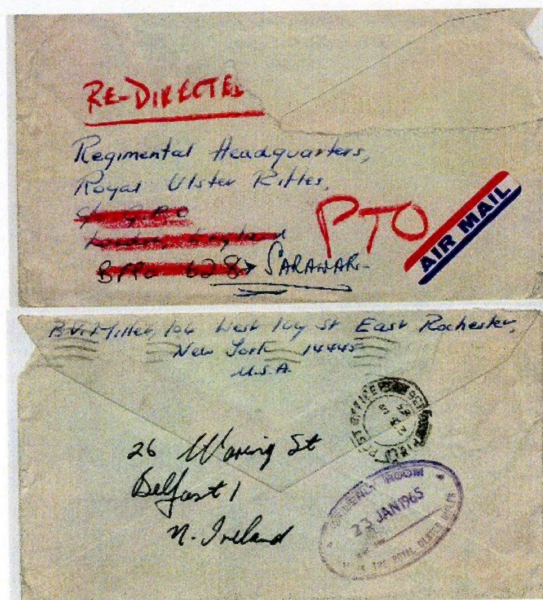 RE-DIRECTED
Regimental Headquarters,
Royal Ulster Rifles,
c/o GPO
London England
BFPO 628 SARAWAK
PTO
AIR MAIL
B.V. Miller, 104 West Ivy St East Rochester,
New York 14445
U.S.A.
26 Waring St
Belfast 1
N. Ireland
FIELD POST OFFICE
ORDERLY ROOM
23 JAN 1965
THE ROYAL ULSTER RIFLES